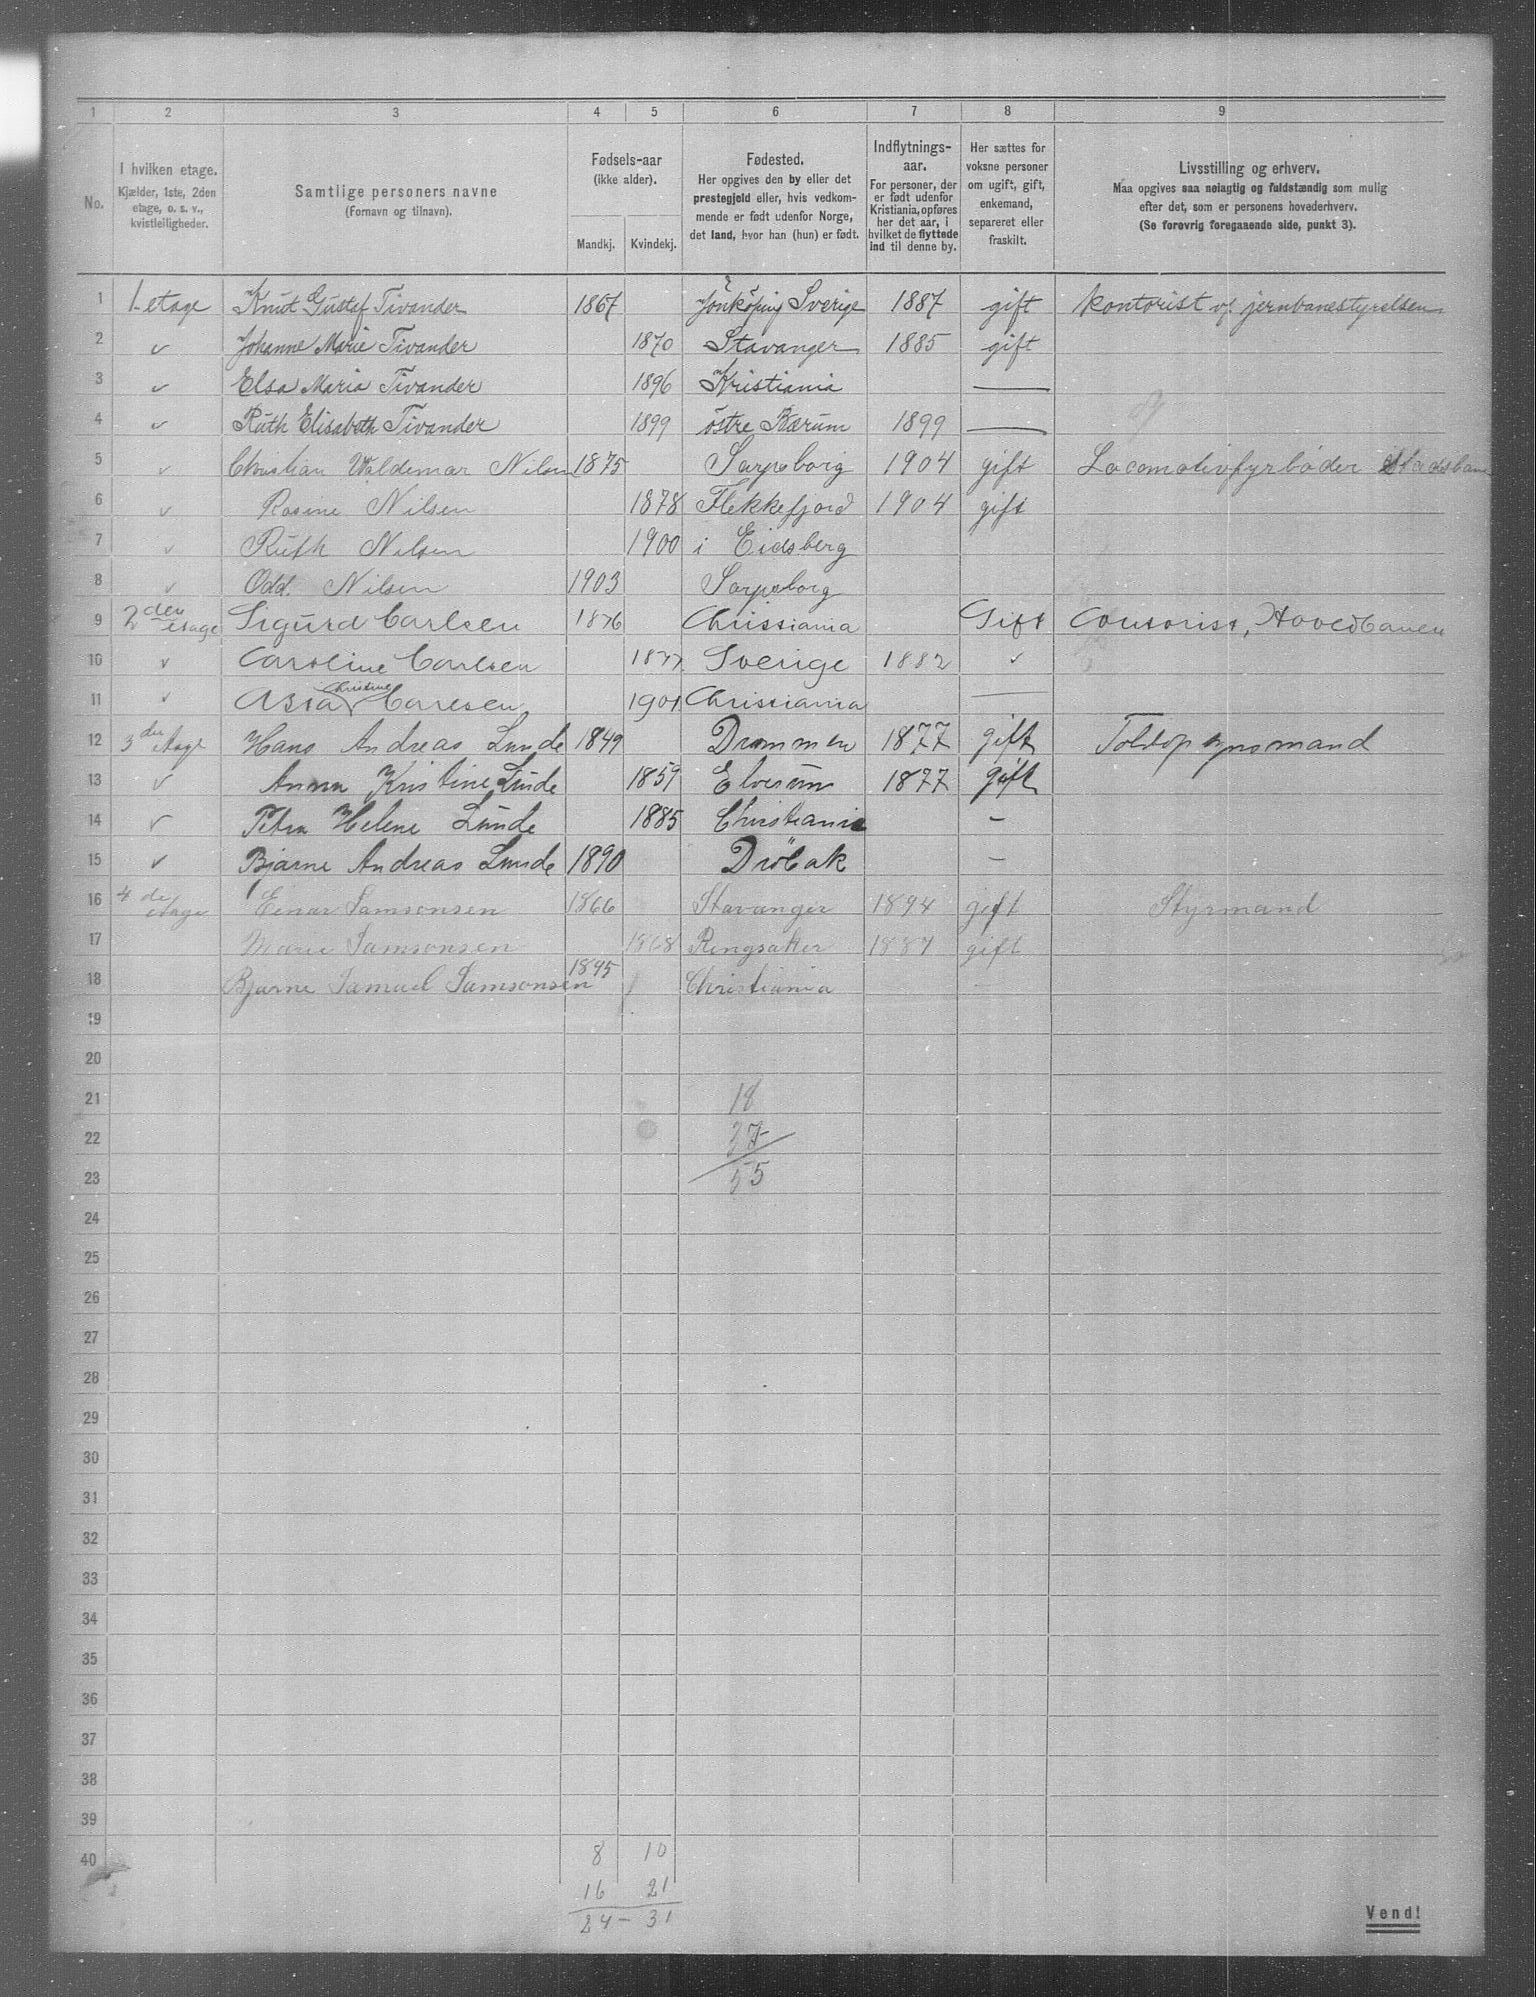 1 2 3 4 5 6 7 8 9
No.
I hvilken etage.
Kjælder, 1ste, 2den
etage, o. s. v.,
kvistleiligheder.
Samtlige personers navne
(Fornavn og tilnavn).
Fødsels-aar
(ikke alder).
Mandkj. Kvindekj.
Fødested.
Her opgives den by eller det
prestegjeld eller, hvis vedkom-
mende er født udenfor Norge,
det land, hvor han (hun) er født.
Indflytnings-
aar.
For personer, der
er født udenfor
Kristiania, opføres
her det aar, i
hvilket de flyttede
ind til denne by.
Her sættes for
voksne personer
om ugift, gift,
enkemand,
separeret eller
fraskilt.
Livsstilling og erhverv.
Maa opgives saa nøiagtig og fuldstændig som mulig
efter det, som er personens hovederhverv.
(Se forøvrig foregaaende side, punkt 3).
1 1. etage Knut Gustaf Tivander 1867 Jönköping Sverige 1887 gift kontorist v. jernbanestyrelsen
2 v Johanne Marie Tivander 1870 Stavanger 1885 gift
3 v Elsa Maria Tivander 1896 Kristiania —
4 v Ruth Elisabeth Tivander 1899 östre Bærum 1899 —
5 v Christian Waldemar Nilsen 1875 Sarpsborg 1904 gift Locomotivfyrbøder Stadsban
6 v Rosine Nilsen 1878 Flekkefjord 1904 gift
7 v Ruth Nilsen 1900 i Eidsberg
8 v Odd. Nilsen 1903 Sarpsborg
9 2den etage Sigurd Carlsen 1876 Christiania Gift Contorist, Hovedbanen
10 v Caroline Carlsen 1877 Sverige 1882 v
11 v Asta Christine Carlsen 1901 Christiania —
12 3die etage Hans Andreas Lunde 1849 Drammen 1877 gift Toldopsynsmand
13 v Anna Kristine Lunde 1859 Elverum 1877 gift
14 v Petra Helene Lunde 1885 Christiania –
15 v Bjarne Andreas Lunde 1890 Dröbak –
16 4de etage Einar Samsonsen 1866 Stavanger 1894 gift Styrmand
17 Marie Samsonsen 1868 Ringsaker 1887 gift
18 Bjarne Samuel Samsonsen 1895 Christiania
19
20
21 18
22 37
23 55
24
25
26
27
28
29
30
31
32
33
34
35
36
37
38
39
40 8 10
16 21
24 – 31
Vend!